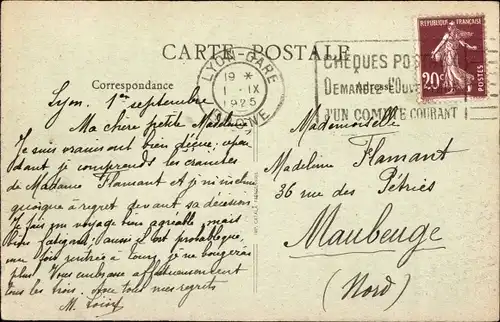 CARTE-POSTALE
Correspondance
LYON-GARE
19 *
1 - IX
1925
RHONE
CHÈQUES POST
DEMAND L'OUV
D'UN COMPTE COURANT
Adresse
RÉPUBLIQUE FRANÇAISE
20c
POSTES
Lyon. 1er septembre
Ma chère petite Madeleine
Je suis vraiment bien déçue, cepen
dant je comprends les craintes
de Madame Flamant et je m'incline
quoique à regret devant sa décision
Je fais un voyage bien agréable, mais
bien fatigant; aussi il est probable que,
une fois rentrée à Tours, je ne bougerai
plus. Vous embrasse affectueusement
tous les trois. Avec tous mes regrets
M.
Mademoiselle
Madeleine Flamant
36 rue des Pétries
Maubeuge
(Nord)